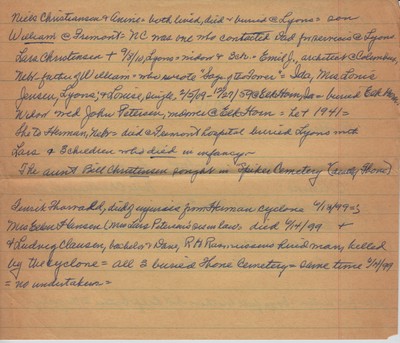 Neils Christensen & Annie = both lived, died & buried @ Lyons = son
William @ Fremont = NC was one who contacted Dad for services @ Lyons
Lars Christensen + 9/7/10 Lyons = widow & 3 ch. = Emil J, architect @ Columbus,
Nebr = father of William = who wrote = Ida, Mrs Louis
Jensen, Lyons; & Louise, single, Elk Horn, Ia = buried Elk Horn,
Widow wed John Petersen, @ Elk Horn = he + 1941 =
She to Herman, Nebr = died @ Fremont hospital buried Lyons with
Lars & 3 children who died in infancy =
The aunt Bill Christensen sought in Spiker Cemetery (Thone)
Henrik Thorvald, died of injuries from Herman cyclone 6/14/99 =
Mrs Hansen (Mrs Lars Petersen's died 6/14/99 +
& Ludvig Clausen, bachelor & Dane, R H Rasmussens hired man, killed
by the cyclone = all 3 buried Thone Cemetery = same time
= no undertaker =